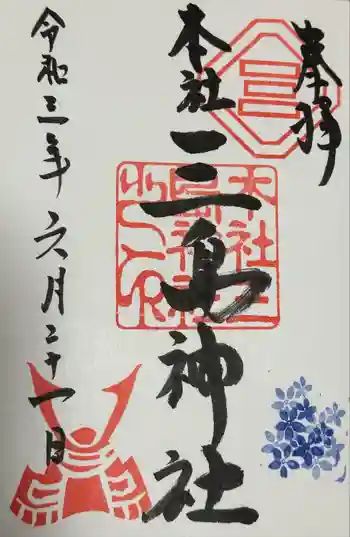 奉拝
本社
三島神社
令和三年六月二十一日
三
本社三島神社之印